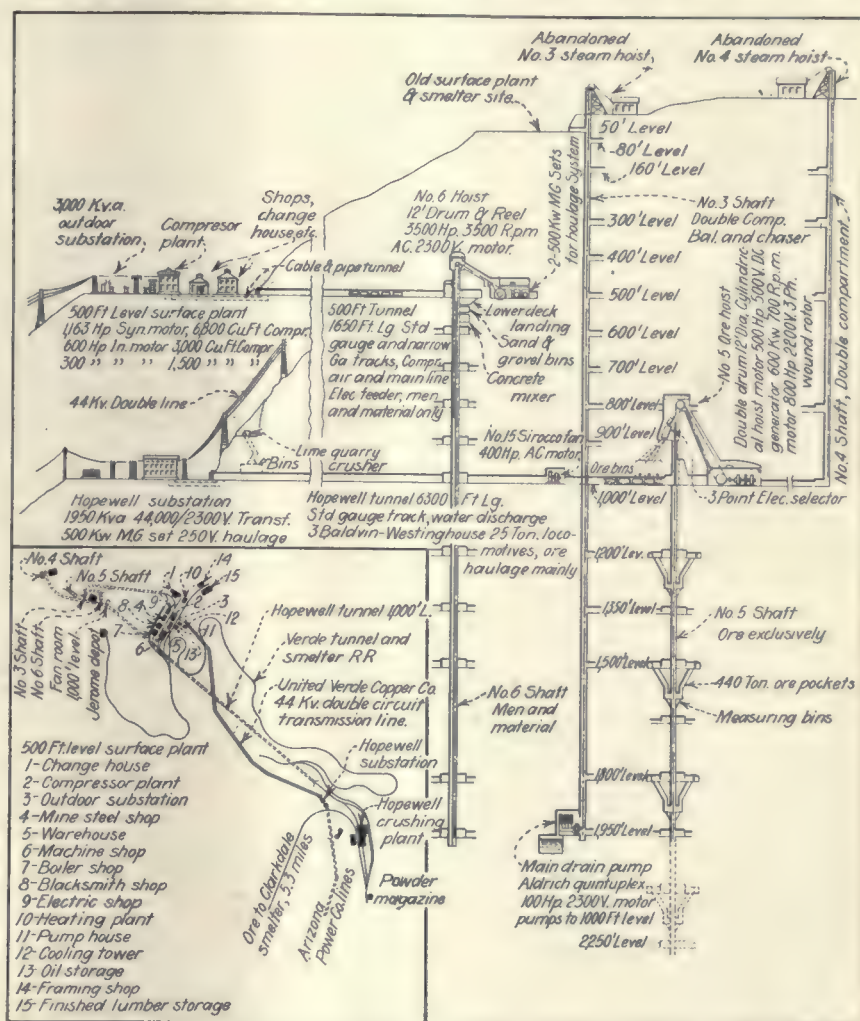 Abandoned
No.3 steam hoist,
Abandoned
No.4 steam hoist
Old surface plant
& smelter site
50' Level
80' Level
160' Level
300' Level
400' Level
500' Level
600' Level
700' Level
800' Level
900' Level
1,000' Level
1,200' Lev.
1,350' Level
1,500' Level
1,800' Level
1,950' Level
2,250' Level
No.3 Shaft
Double Comp.
Bal. and chaser
No.4 Shaft, Double compartment
2-500 Kw MG Sets
for haulage System
No.6 Hoist
12' Drum & Reel
3500 Hp. 3500 Rpm
AC. 2300 V. motor.
3,000 Kv.a.
outdoor
substation
Compresor
plant
Shops,
change
house, etc.
Cable & pipe tunnel
500 Ft Level surface plant
1,163 Hp Syn. motor, 6,800 Cu Ft Compr.
600 Hp In. motor 3,000 Cu Ft. Compr
300 " " " 1,500 " " "
500 Ft Tunnel
1650 Ft. Lg Std
gauge and narrow
Ga tracks, Compr.
air and main line
Elec feeder, men
and material only
Lower deck
landing
Sand &
gravel bins
Concrete
mixer
No.5 Ore hoist
Double drum 12' Dia, Cylindric
al hoist motor 500 Hp 500 V. DC
generator 600 Kw 700 R.p.m.
motor 800 Hp 2200 V. 3 Ph.
wound rotor
44 Kv. Double line
Lime quarry
crusher
Bins
No.15 Sirocco fan
400 Hp. AC motor
Ore bins
3 Point Elec. selector
Hopewell substation
1950 Kva 44,000/2300 V. Transf.
500 Kw MG set 250 V. haulage
Hopewell tunnel 6300 Ft Lg.
Std gauge track, water discharge
3 Baldwin-Westinghouse 25 Ton. loco-
motives, ore
haulage mainly
No.5 Shaft
Ore exclusively
440 Ton. ore pockets
Measuring bins
No.6 Shaft
Men and
material
Main drain pump
Aldrich quintuplex
100 Hp. 2300 V. motor
pumps to 1000 Ft level
No.4 Shaft
No.5 Shaft
No.3 Shaft
No.6 Shaft
Fan room
1,000' level
Jerome depot
1
10
14
15
9
2
3
8
4
12
7
11
6
5
13
Hopewell tunnel 1,000' L.
Verde tunnel and
smelter RR
United Verde Copper Co.
44 Kv. double circuit
transmission line.
Hopewell
substation
Hopewell
crushing
plant
Powder
magazine
Ore to Clarkdale
smelter, 5.3 miles
Arizona
Power Co. lines
500 Ft. level surface plant
1-Change house
2-Compressor plant
3-Outdoor substation
4-Mine steel shop
5-Warehouse
6-Machine shop
7-Boiler shop
8-Blacksmith shop
9-Electric shop
10-Heating plant
11-Pump house
12-Cooling tower
13-Oil storage
14-Framing shop
15-Finished lumber storage